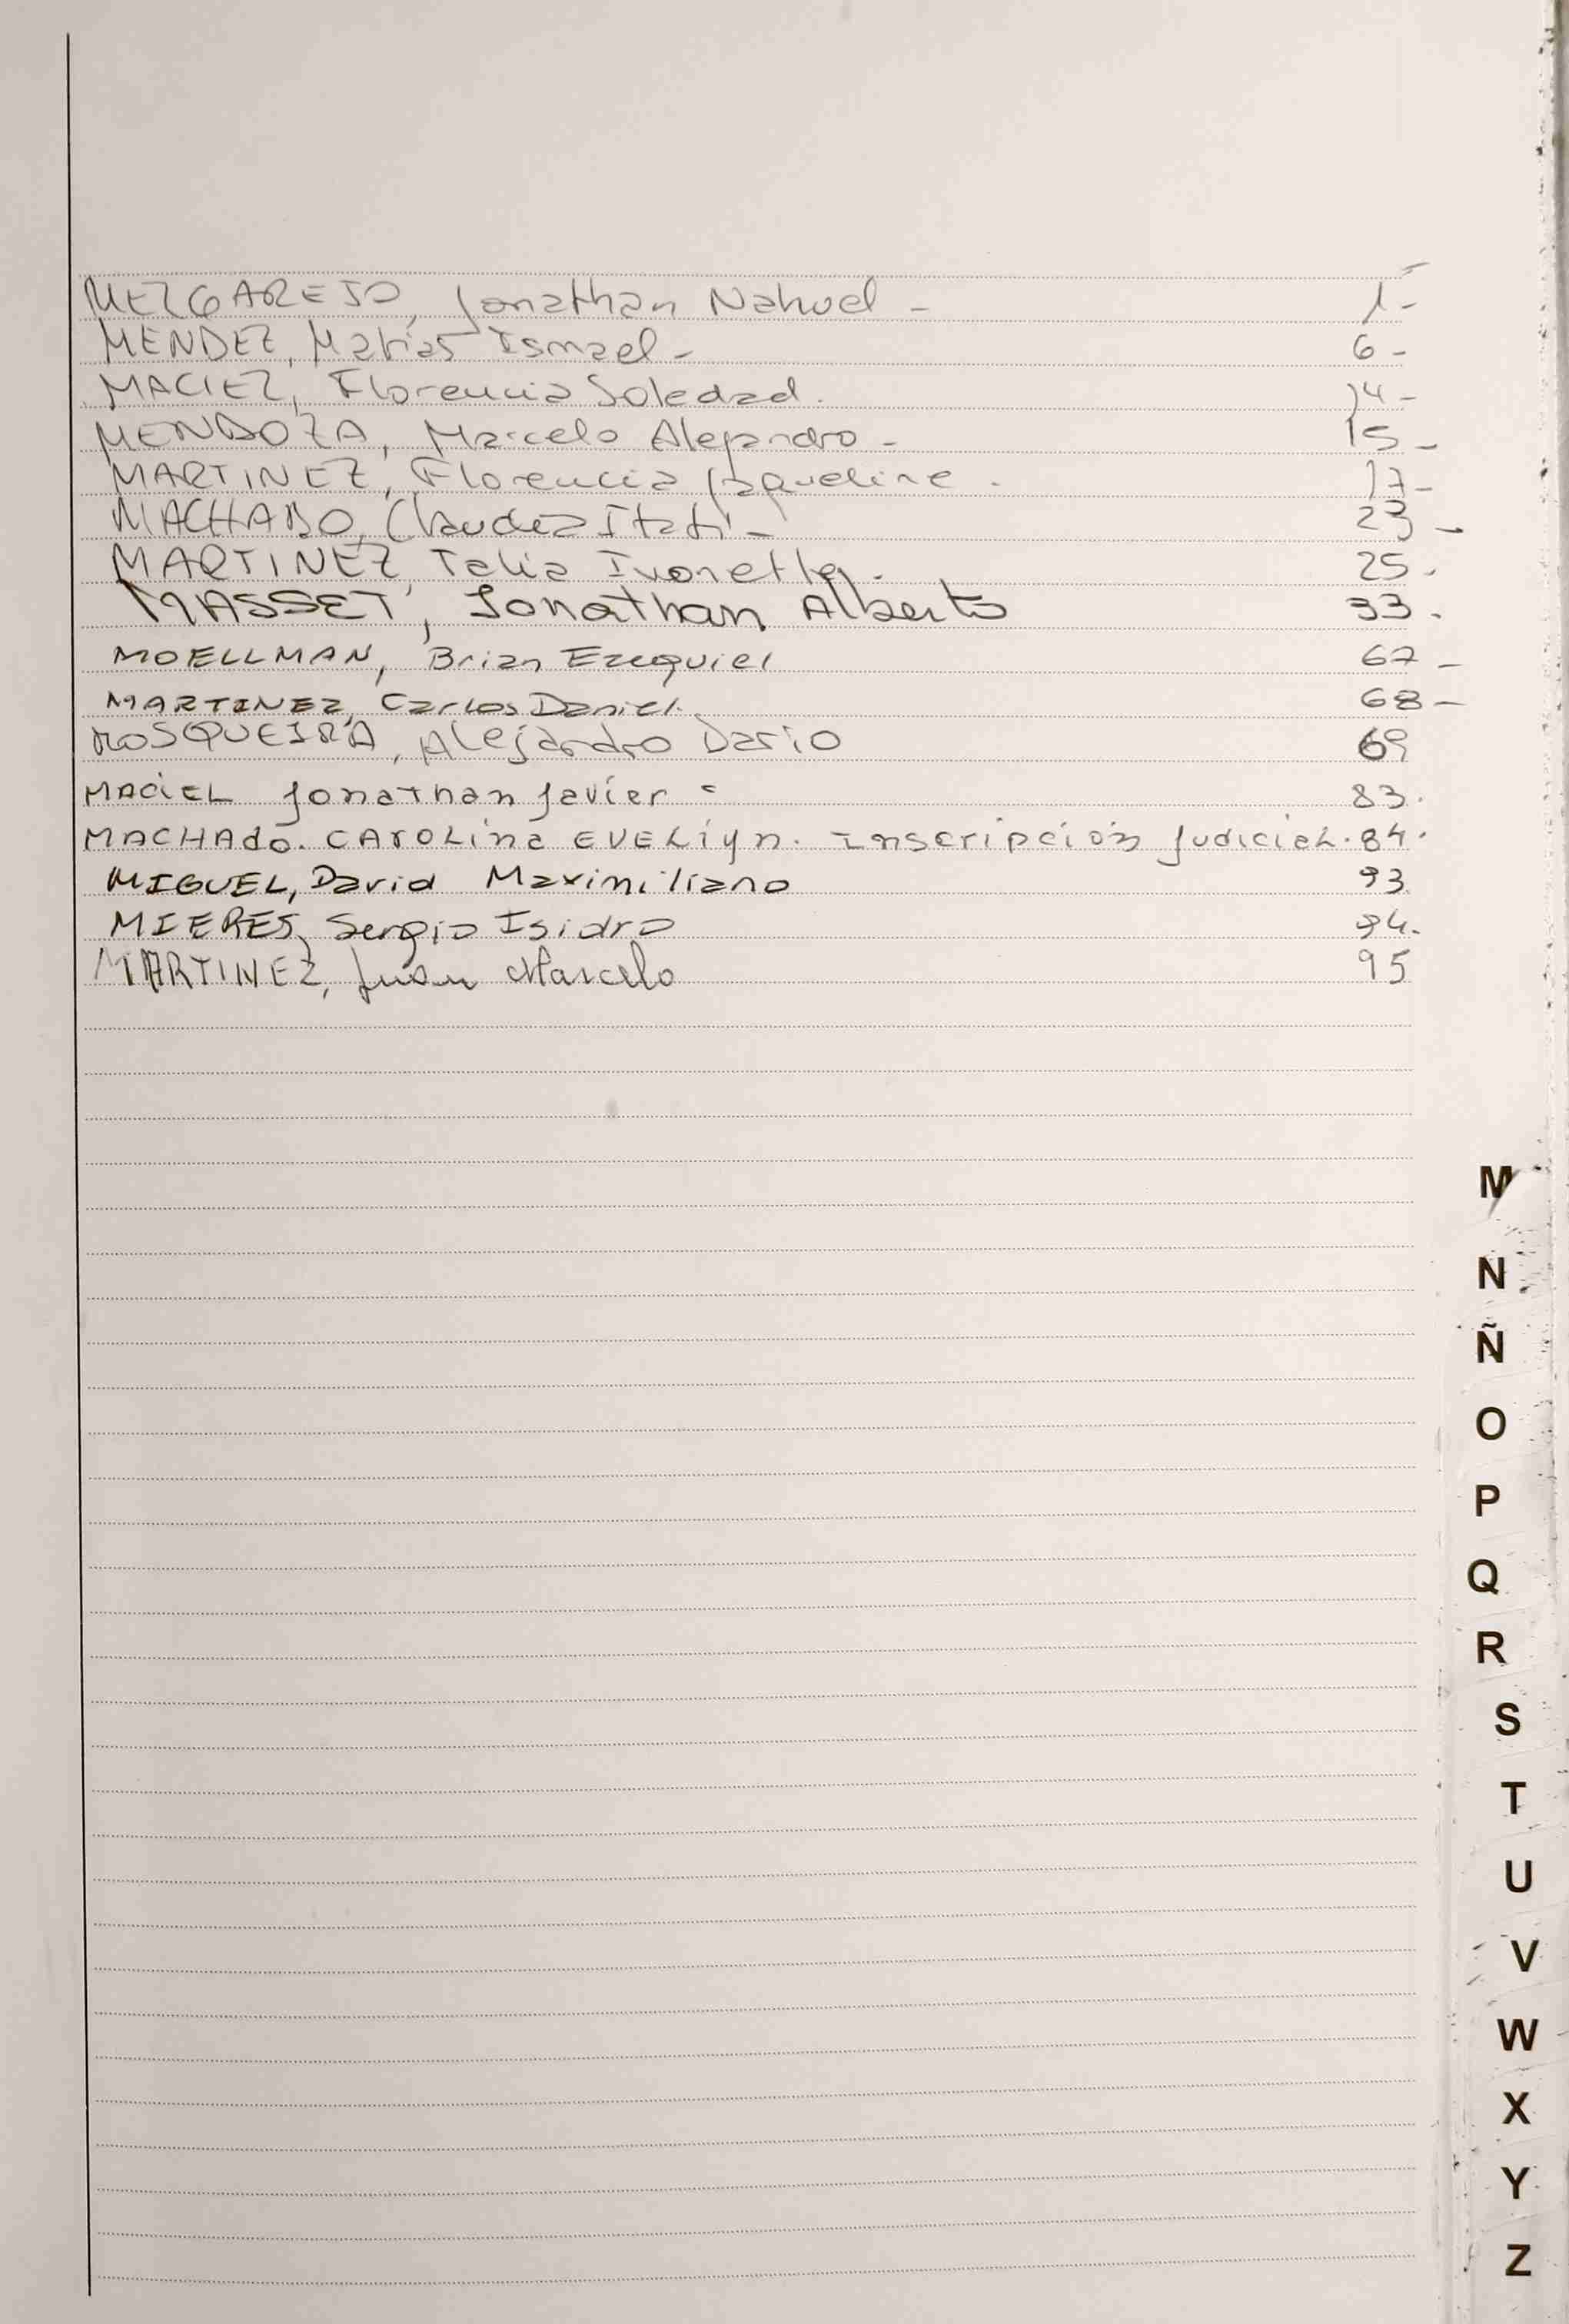 MELGAREJO, Jonathan Nahuel - 1-
MENDEZ, Matias Ismael - 6-
MACIEL, Florencia Soledad. 14-
MENDOZA, Marcelo Alejandro - 15-
MARTINEZ, Florencia Jaqueline. 17-
MACHADO, Claudia Itatí - 23-
MARTINEZ, Talia Ivonette. 25.
MASSET, Jonathan Alberto 33.
MOELLMAN, Brian Ezequiel 67-
MARTINEZ, Carlos Daniel. 68-
MOSQUEIRA, Alejandro Dario 69
MACIEL Jonathan Javier - 83.
MACHAdo. CAROLina EVELiyn. Inscripción Judicial. 84.
MIGUEL, David Maximiliano 93.
MIERES, Sergio Isidro 94.
MARTINEZ, Juan Marcelo 95
M
N
Ñ
O
P
Q
R
S
T
U
V
W
X
Y
Z